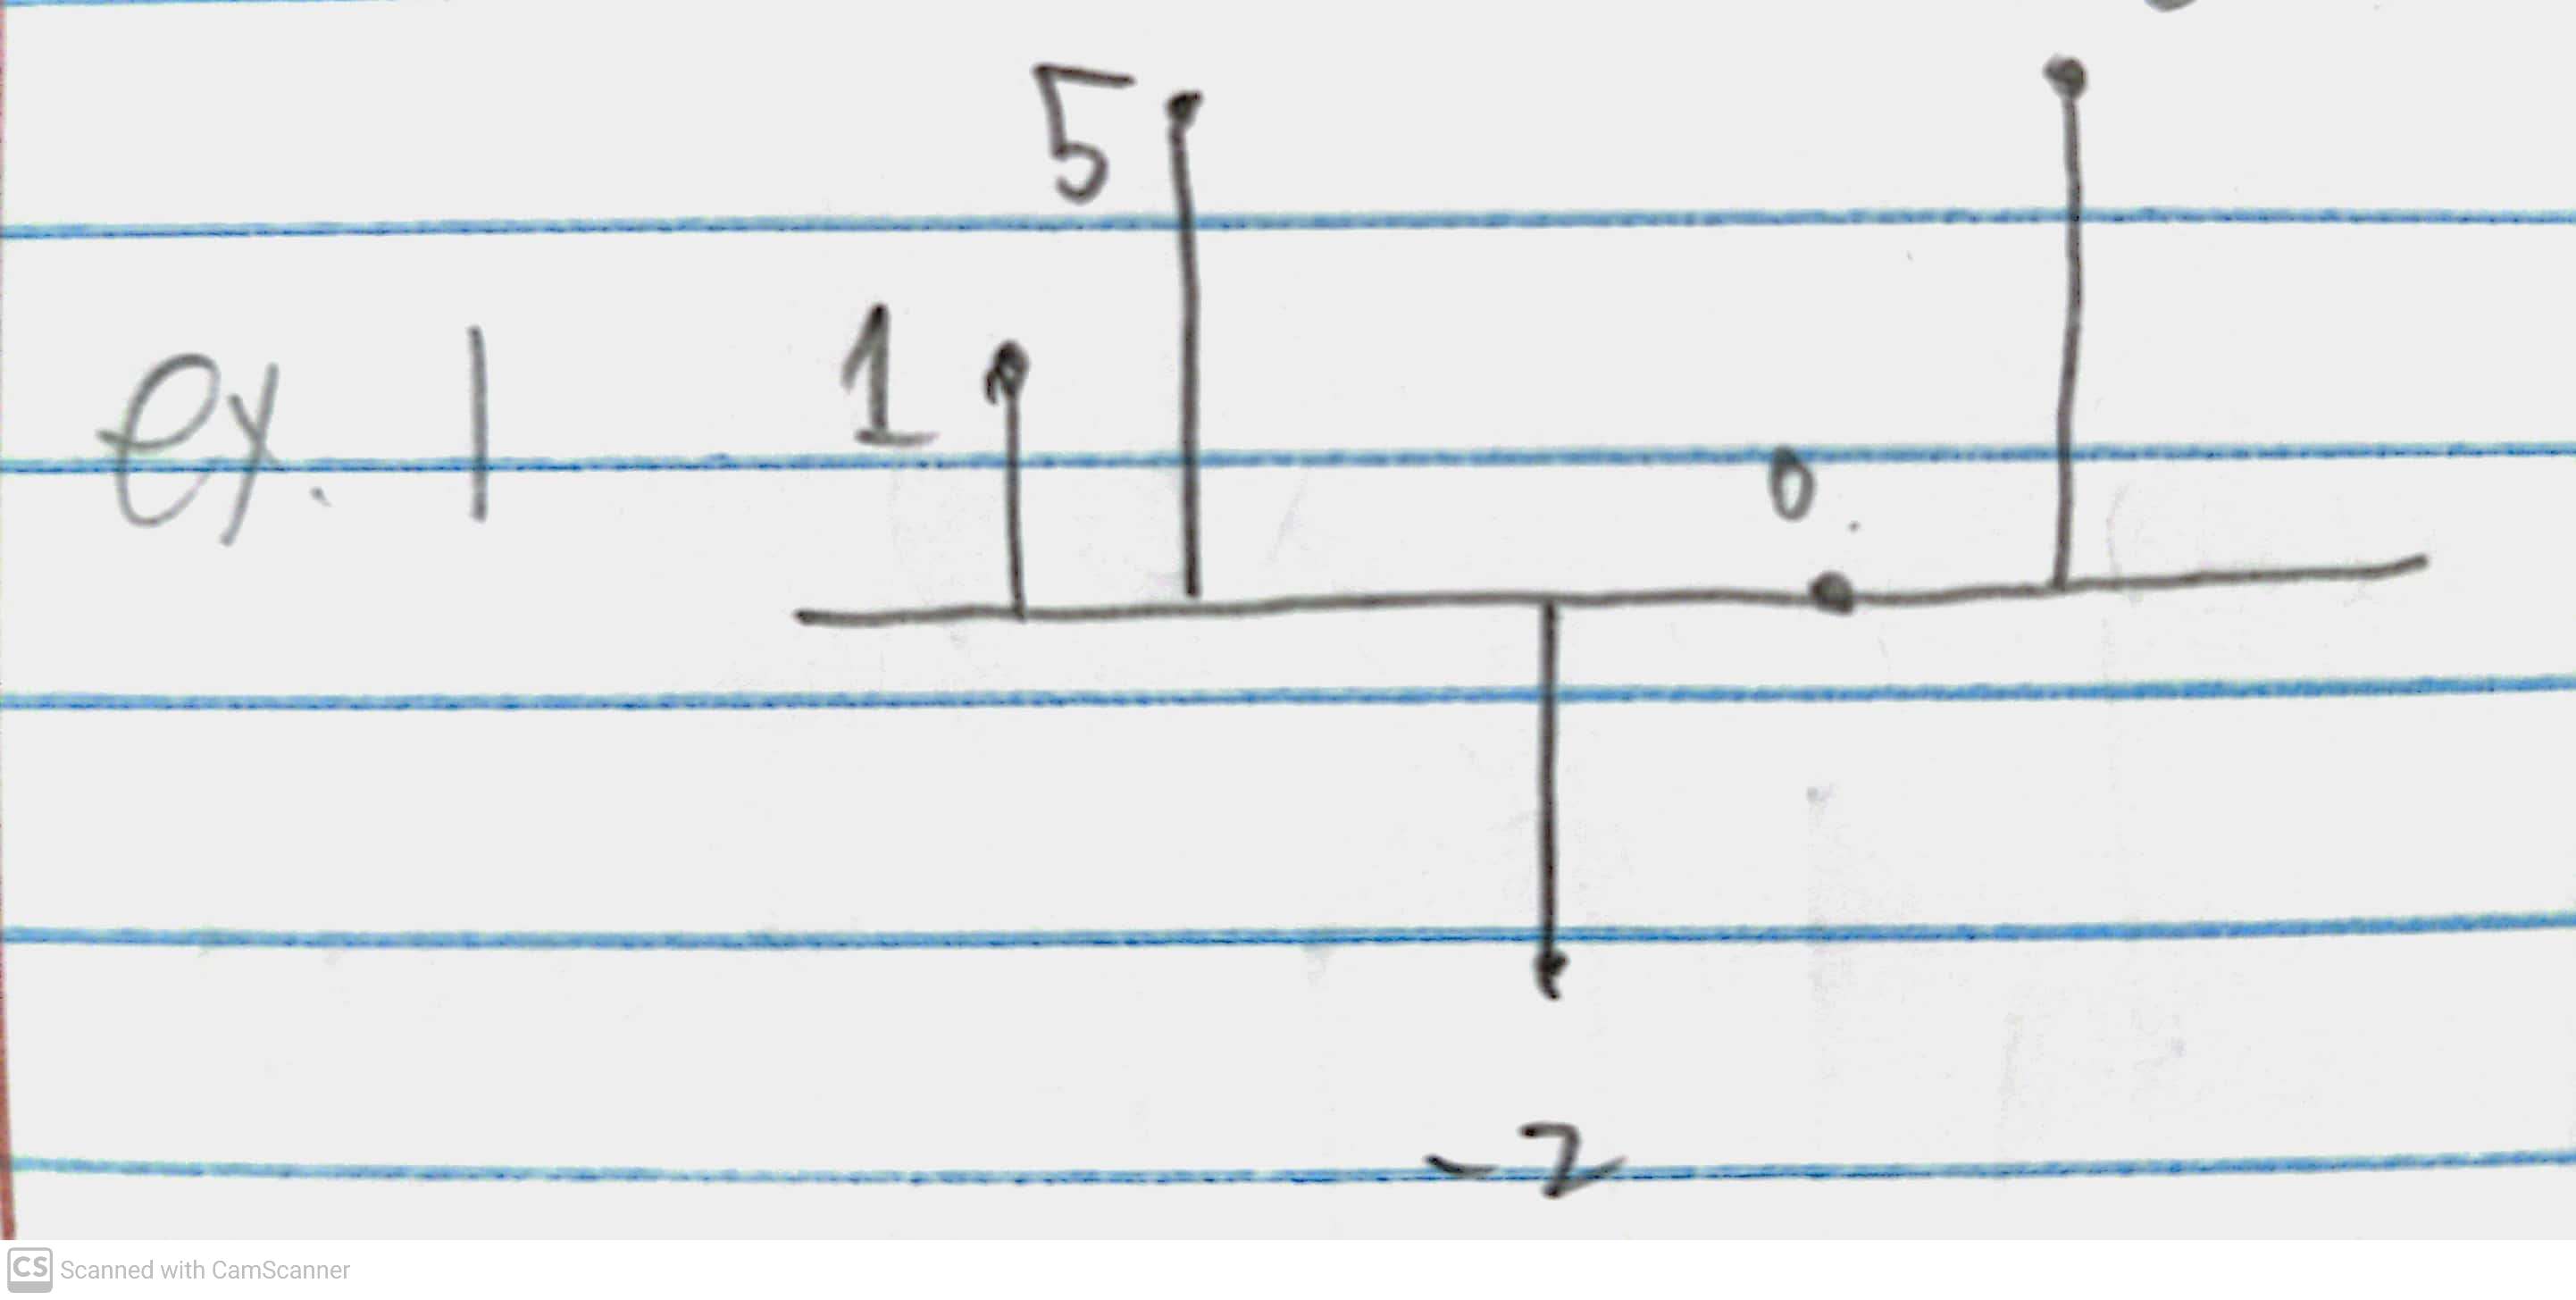 5
ex. 1 1
0
-2
CS Scanned with CamScanner